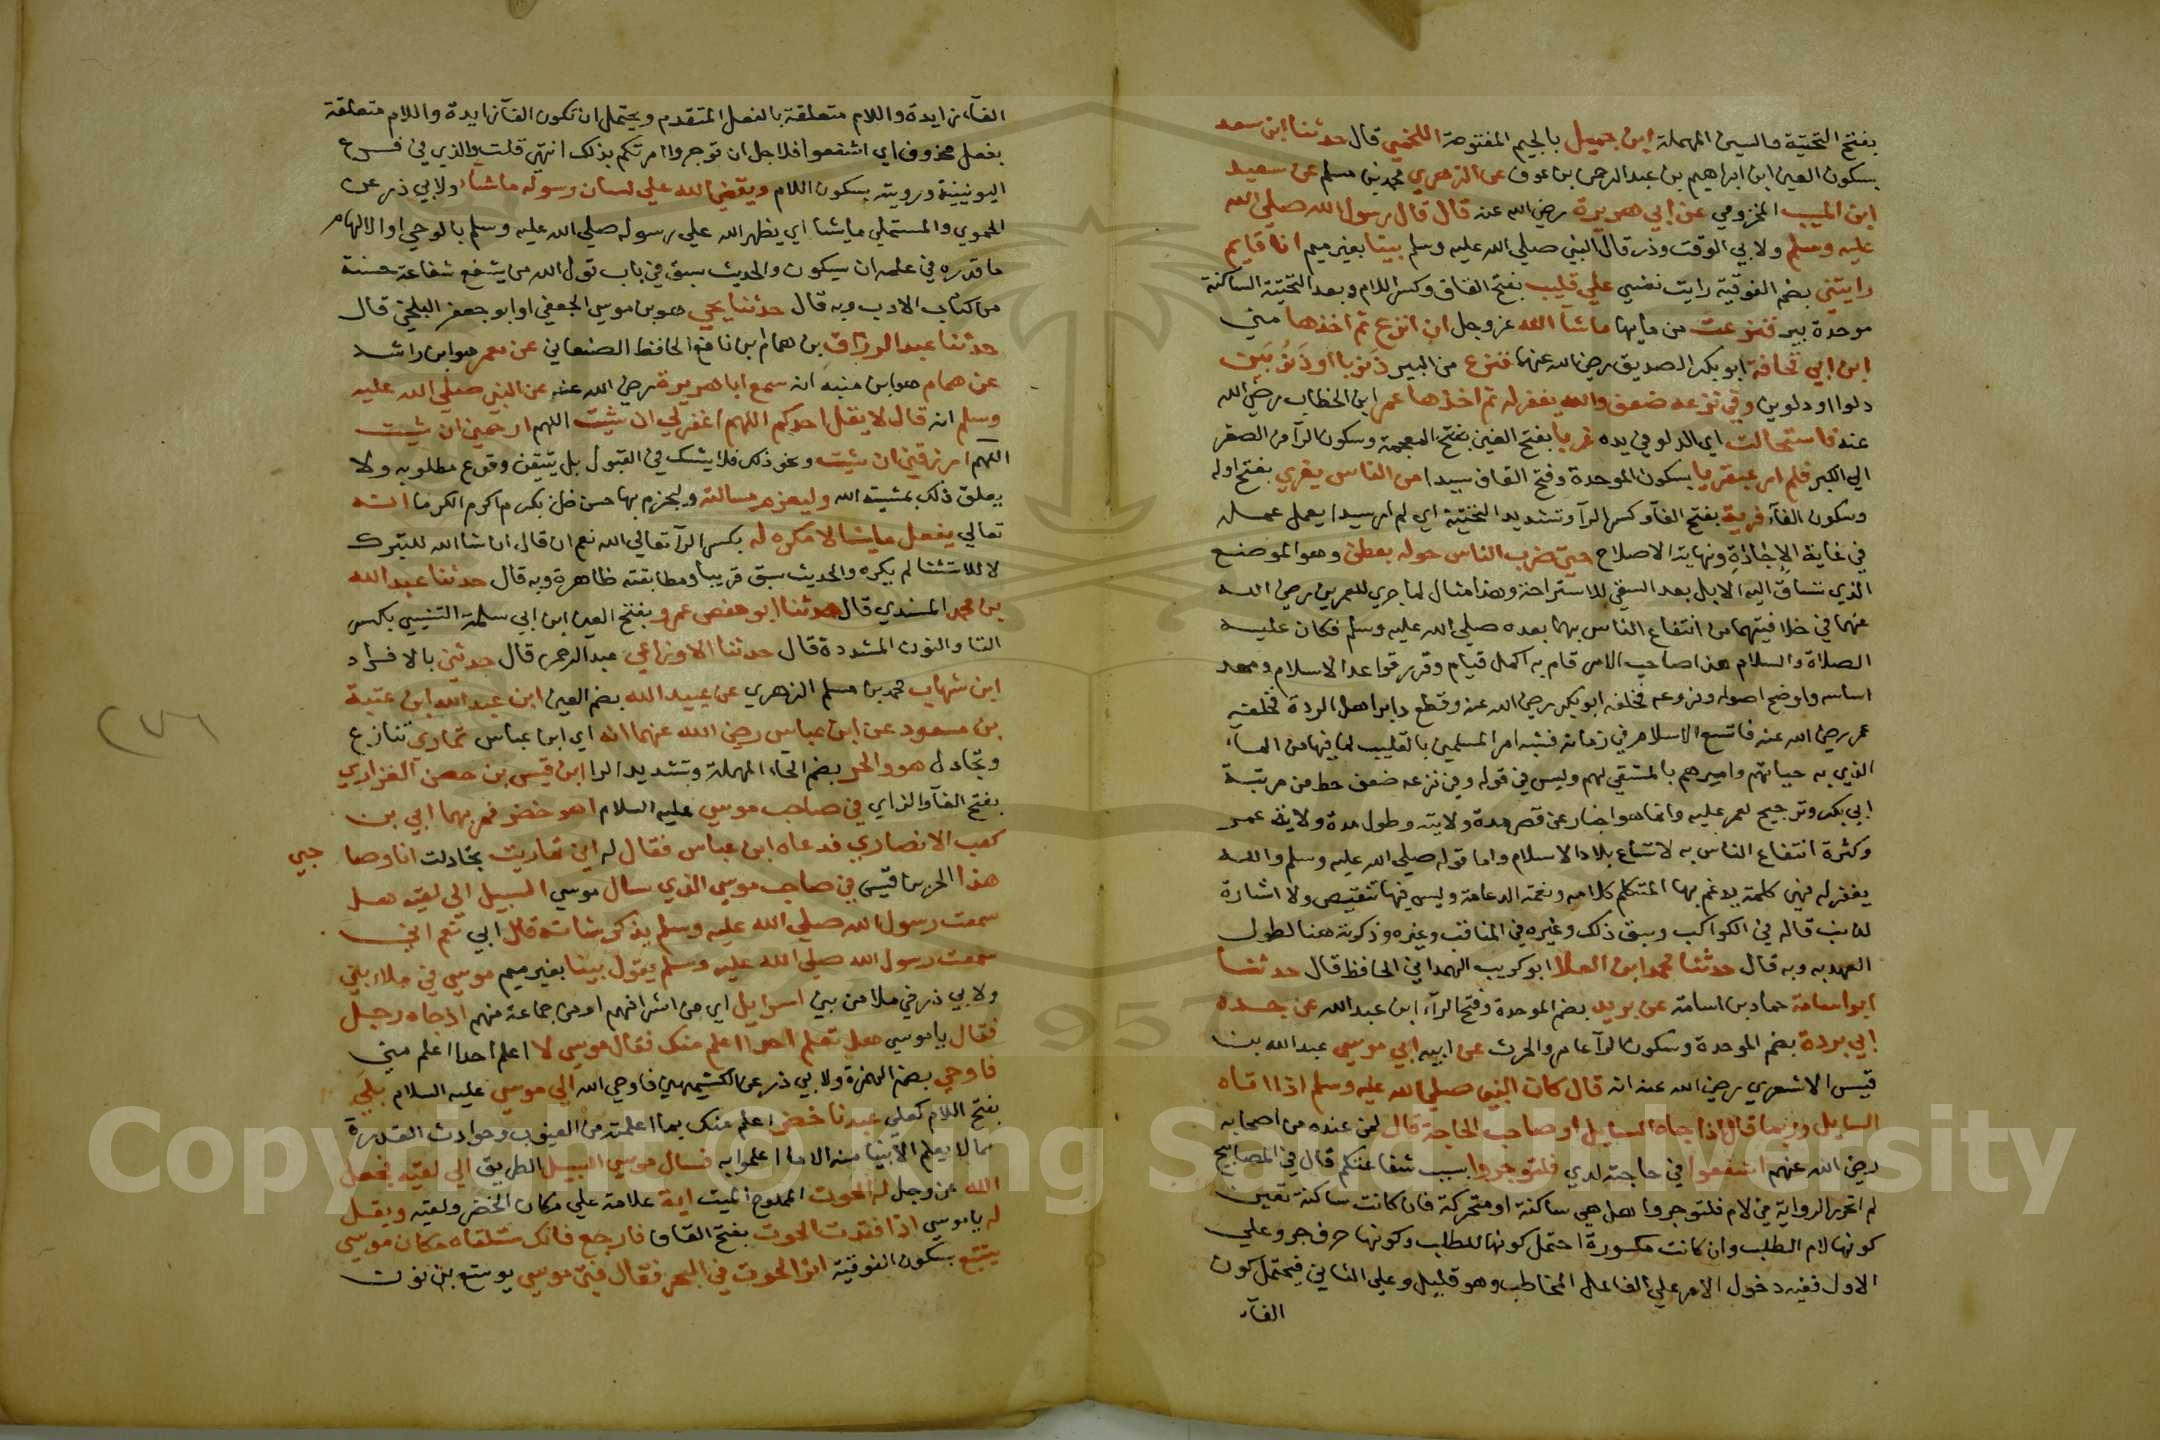 بفتح التحتية والسين المهملة ابن جميل بالجيم المفتوحة اللخمي قال حدثنا ابن سعد
بسكون العين ابن ابراهيم بن عبد الرحمن بن عوف عن الزهري محمد بن مسلم عن سعيد
ابن المسيب المخزومي عن ابي هريرة رضي الله عنه قال قال رسول الله صلي الله
عليه وسلم ولابي الوقت وذر قال النبي صلي الله عليه وسلم بينا بغير ميم انا قايم
رايتني بضم الفوقية رايت نفسي علي قليب بفتح القاف وكسر اللام وبعد التحتية الساكنة
موحدة بير فنزعت من مايها ماشا الله عز وجل ان انزع ثم اخذها مني
ابن ابي قحافة ابو بكر الصديق رضي الله عنهما فنزع من البير ذنوبا او ذنوبين
دلوا او دلوين وفي نزعه ضعف والله يغفر له ثم اخذها عمر ابن الخطاب رضي الله
عنه فاستحالت اي الدلو في يده غربا بفتح الغين بفتح المعجمة وسكون الرآ من الصغر
الي الكبر فلم ار عبقريا بسكون الموحدة وفتح القاف سيدا من الناس يفري بفتح اوله
وسكون الفآء فرية بفتح الفآ وكسر الرآ وتشديد التحتية اي لم ار سيدا يعمل عمله
في غاية الاجادة ونهاية الاصلاح حتي ضرب الناس حوله بعطن وهو الموضع
الذي تساق اليه الابل بعد السقي للاستراحة وهذا مثال لما جري للعمرين رضي الله
عنهما في خلافيتهما من انتفاع الناس بهما بعده صلي الله عليه وسلم فكان عليه
الصلاة والسلام هذا صاحب الامر قام به اكمل قيام وقرر قواعد الاسلام ومهد
اساسه واوضح اصوله وفروعه فخلفه ابو بكر رضي الله عنه وقطع دابر اهل الردة فخلفه
عمر رضي الله عنه فاتسع الاسلام في زمانه فشبه امر المسلمين بالقليب لما فيها من المآء
الذي به حياتهم واميرهم بالمستقي لهم وليس في قوله وفي نزعه ضعف حط من مرتبة
ابي بكر وترجيح لعمر عليه وانما هو اخبار عن قصر مدة ولايته وطول مدة ولاية عمر
وكثرة انتفاع الناس به لاتساع بلاد الاسلام واما قوله صلي الله عليه وسلم والله
يغفر له فهي كلمة يدغم بها المتكلم كلامه ونعمة الدعامة وليس فيها تنقيص ولا اشارة
لذنب قاله في الكواكب وسبق ذلك وغيره في المناقب وغيره وذكرته هنا لطول
العهد به وبه قال حدثنا محمد ابن العلا ابو كريب الهمداني الحافظ قال حدثنا
ابو اسامة حماد بن اسامة عن بريد بضم الموحدة وفتح الرآء ابن عبد الله عن جده
ابي بردة بضم الموحدة وسكون الرآ عامر والحرث عن ابيه ابي موسي عبد الله بن
قيس الاشعري رضي الله عنه انه قال كان النبي صلي الله عليه وسلم اذا اتاه
السايل وربما قال اذا جاه السايل او صاحب الحاجة قال لمن عنده من اصحابه
رضي الله عنهم اشفعوا في حاجته لدي فلتوجروا بسبب شفاعتكم قال في المصابيح
لم اتحرر الرواية في لام فلتوجروا هل هي ساكنة او متحركة فان كانت ساكنة تعين
كونها لام الطلب وان كانت مكسورة احتمل كونها للطلب وكونها حرف جر وعلي
الاول ففيه دخول الامر علي الفاعل المخاطب وهو قليل وعلي الثاني فيحتمل كون
الفآء
الفآء زايدة واللام متعلقة بالفعل المتقدم ويحتمل ان تكون الفآ زايدة واللام متعلقة
بفعل محذوف اي اشفعوا فلاجل ان توجروا امرتكم بذلك انتهي قلت والذي في فرع
اليونينية ورويته بسكون اللام ويقضي الله علي لسان رسوله ماشاء ولابي ذر عن
الحموي والمستملي مايشا اي يظهر الله علي رسوله صلي الله عليه وسلم بالوحي او الالهام
ما قدره في علمه ان سيكون والحديث سبق في باب قول الله من يشفع شفاعة حسنة
من كتاب الادب وبه قال حدثنا يحيي هو بن موسي الجعفي او ابو جعفر البلخي قال
حدثنا عبد الرزاق بن همام بن نافع الحافظ الصنعاني عن معمر هو ابن راشد
عن همام هو ابن منبه انه سمع ابا هريرة رضي الله عنه عن النبي صلي الله عليه
وسلم انه قال لا يقل احدكم اللهم اغفر لي ان شيت اللهم ارحمني ان شيت
اللهم ارزقني ان شيت ونحو ذلك فلا يشك في القبول بل يتيقن وقوع مطلوبه ولا
يعلق ذلك بمشيته الله وليعزم مسالته وليجزم بها حسن ظن بكرم اكرم الكرما انه
تعالي يفعل مايشا لا مكره له بكسر الرآ تعالي الله نعم ان قال ان شا الله للتبرك
لا للاستثنا لم يكره والحديث سبق قريبا ومطابقته ظاهرة وبه قال حدثنا عبد الله
بن محمد المسندي قال حدثنا ابو حفص عمرو بفتح العين ابن ابي سلمة التنيسي بكسر
التا والنون المشددة قال حدثنا الاوزاعي عبد الرحمن قال حدثني بالافراد
ابن شهاب محمد بن مسلم الزهري عن عبيد الله بضم العين ابن عبد الله ابن عتبة
بن مسعود عن ابن عباس رضي الله عنهما انه اي ابن عباس تماري تنازع
وتجادل هو والحر بضم الحاء المهملة وتشديد الرا ابن قيس بن حصن الفزاري
بفتح الفآ والزاي في صاحب موسي عليه السلام اهو خضر فمر بهما ابي بن
كعب الانصاري فدعاه ابن عباس فقال له اني تماريت تجادلت انا وصاحبي
هذا الحر بن قيس في صاحب موسي الذي سال موسي السبيل الي لقيه هل
سمعت رسول الله صلي الله عليه وسلم يذكر شانه قال ابي نعم اني
سمعت رسول الله صلي الله عليه وسلم يقول بينا بغير ميم موسي في ملاء بني
ولابي ذر في ملا من بني اسرايل اي من اشرافهم او من جماعة منهم اذ جاه رجل
فقال يا موسي هل تعلم احدا اعلم منك فقال موسي لا اعلم احدا اعلم مني
فاوحي بضم الهمزة ولابي ذر عن الكشيمهني فاوحي الله الي موسي عليه السلام بلي
بفتح اللام كعلي عبدنا خضر اعلم منك بما اعلمته من الغيوب وحوادث القدرة
مما لا يعلم الانبيا منه الا ما اعلموا به فسال موسي السبيل الطريق الي لقيه فجعل
الله عز وجل له الحوت المملوح الميت اية علامة علي مكان الخضر ولقيه وقيل
له يا موسي اذا فقدت الحوت بفتح القاف فارجع فانك ستلقاه فكان موسي
يتبع بسكون الفوقية اثر الحوت في البحر فقال فتي موسي يوشع بن نون
٢٧٦
Copyright © King Saud University